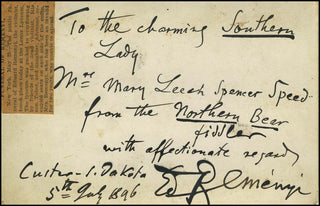 To the charming Southern
Lady.
Mrs Mary Leesh Spencer Speed
from the Northern Bear
fiddler
with affectionate regard
Custer S. Dakota
5th July 1896
Ed Reményi